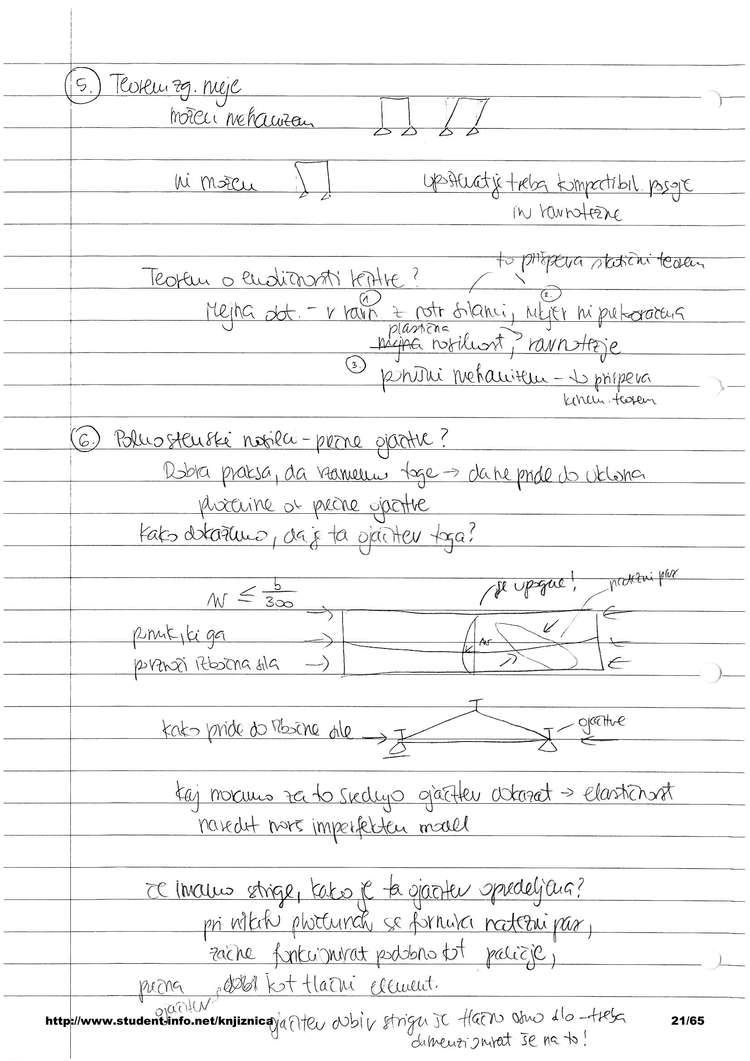 5. Teorem zg. meje
možen mehanizem
ni možen
upoštevat je treba kompatibil. pogoje
in ravnotežne
to prispeva statični teorem
Teorem o enoličnosti rešitve?
Mejna obt. - v ravn z notr silami, nikjer ni prekoračena
1. 2.
plastična
mejna nosilnost, ravnotežje
3. porušni mehanizem - to prispeva
kinem. teorem
6. Polnostenski nosilci - prečne ojačitve?
Dobra praksa, da vzamemo toge → da ne pride do uklona
pločevine ob prečne ojačitve
Kako dokažemo, da je ta ojačitev toga?
w ≤ b/300
se upogne!
natezni pas
pomik, ki ga
povzroči izbočna sila
kako pride do izbočne sile
ojačitve
Kaj moramo za to srednjo ojačitev dokazat → elastičnost
naredit moraš imperfekten model
če imamo strige, kako je ta ojačitev opredeljena?
pri vitkih pločevinah se formira natezni pas,
začne funkcionirat podobno kot paličje,
prečna dobi kot tlačni element.
ojačitev
http://www.student-info.net/knjiznica
ojačitev dobi v strigu še tlačno osno silo - treba
21/65
dimenzionirat še na to!